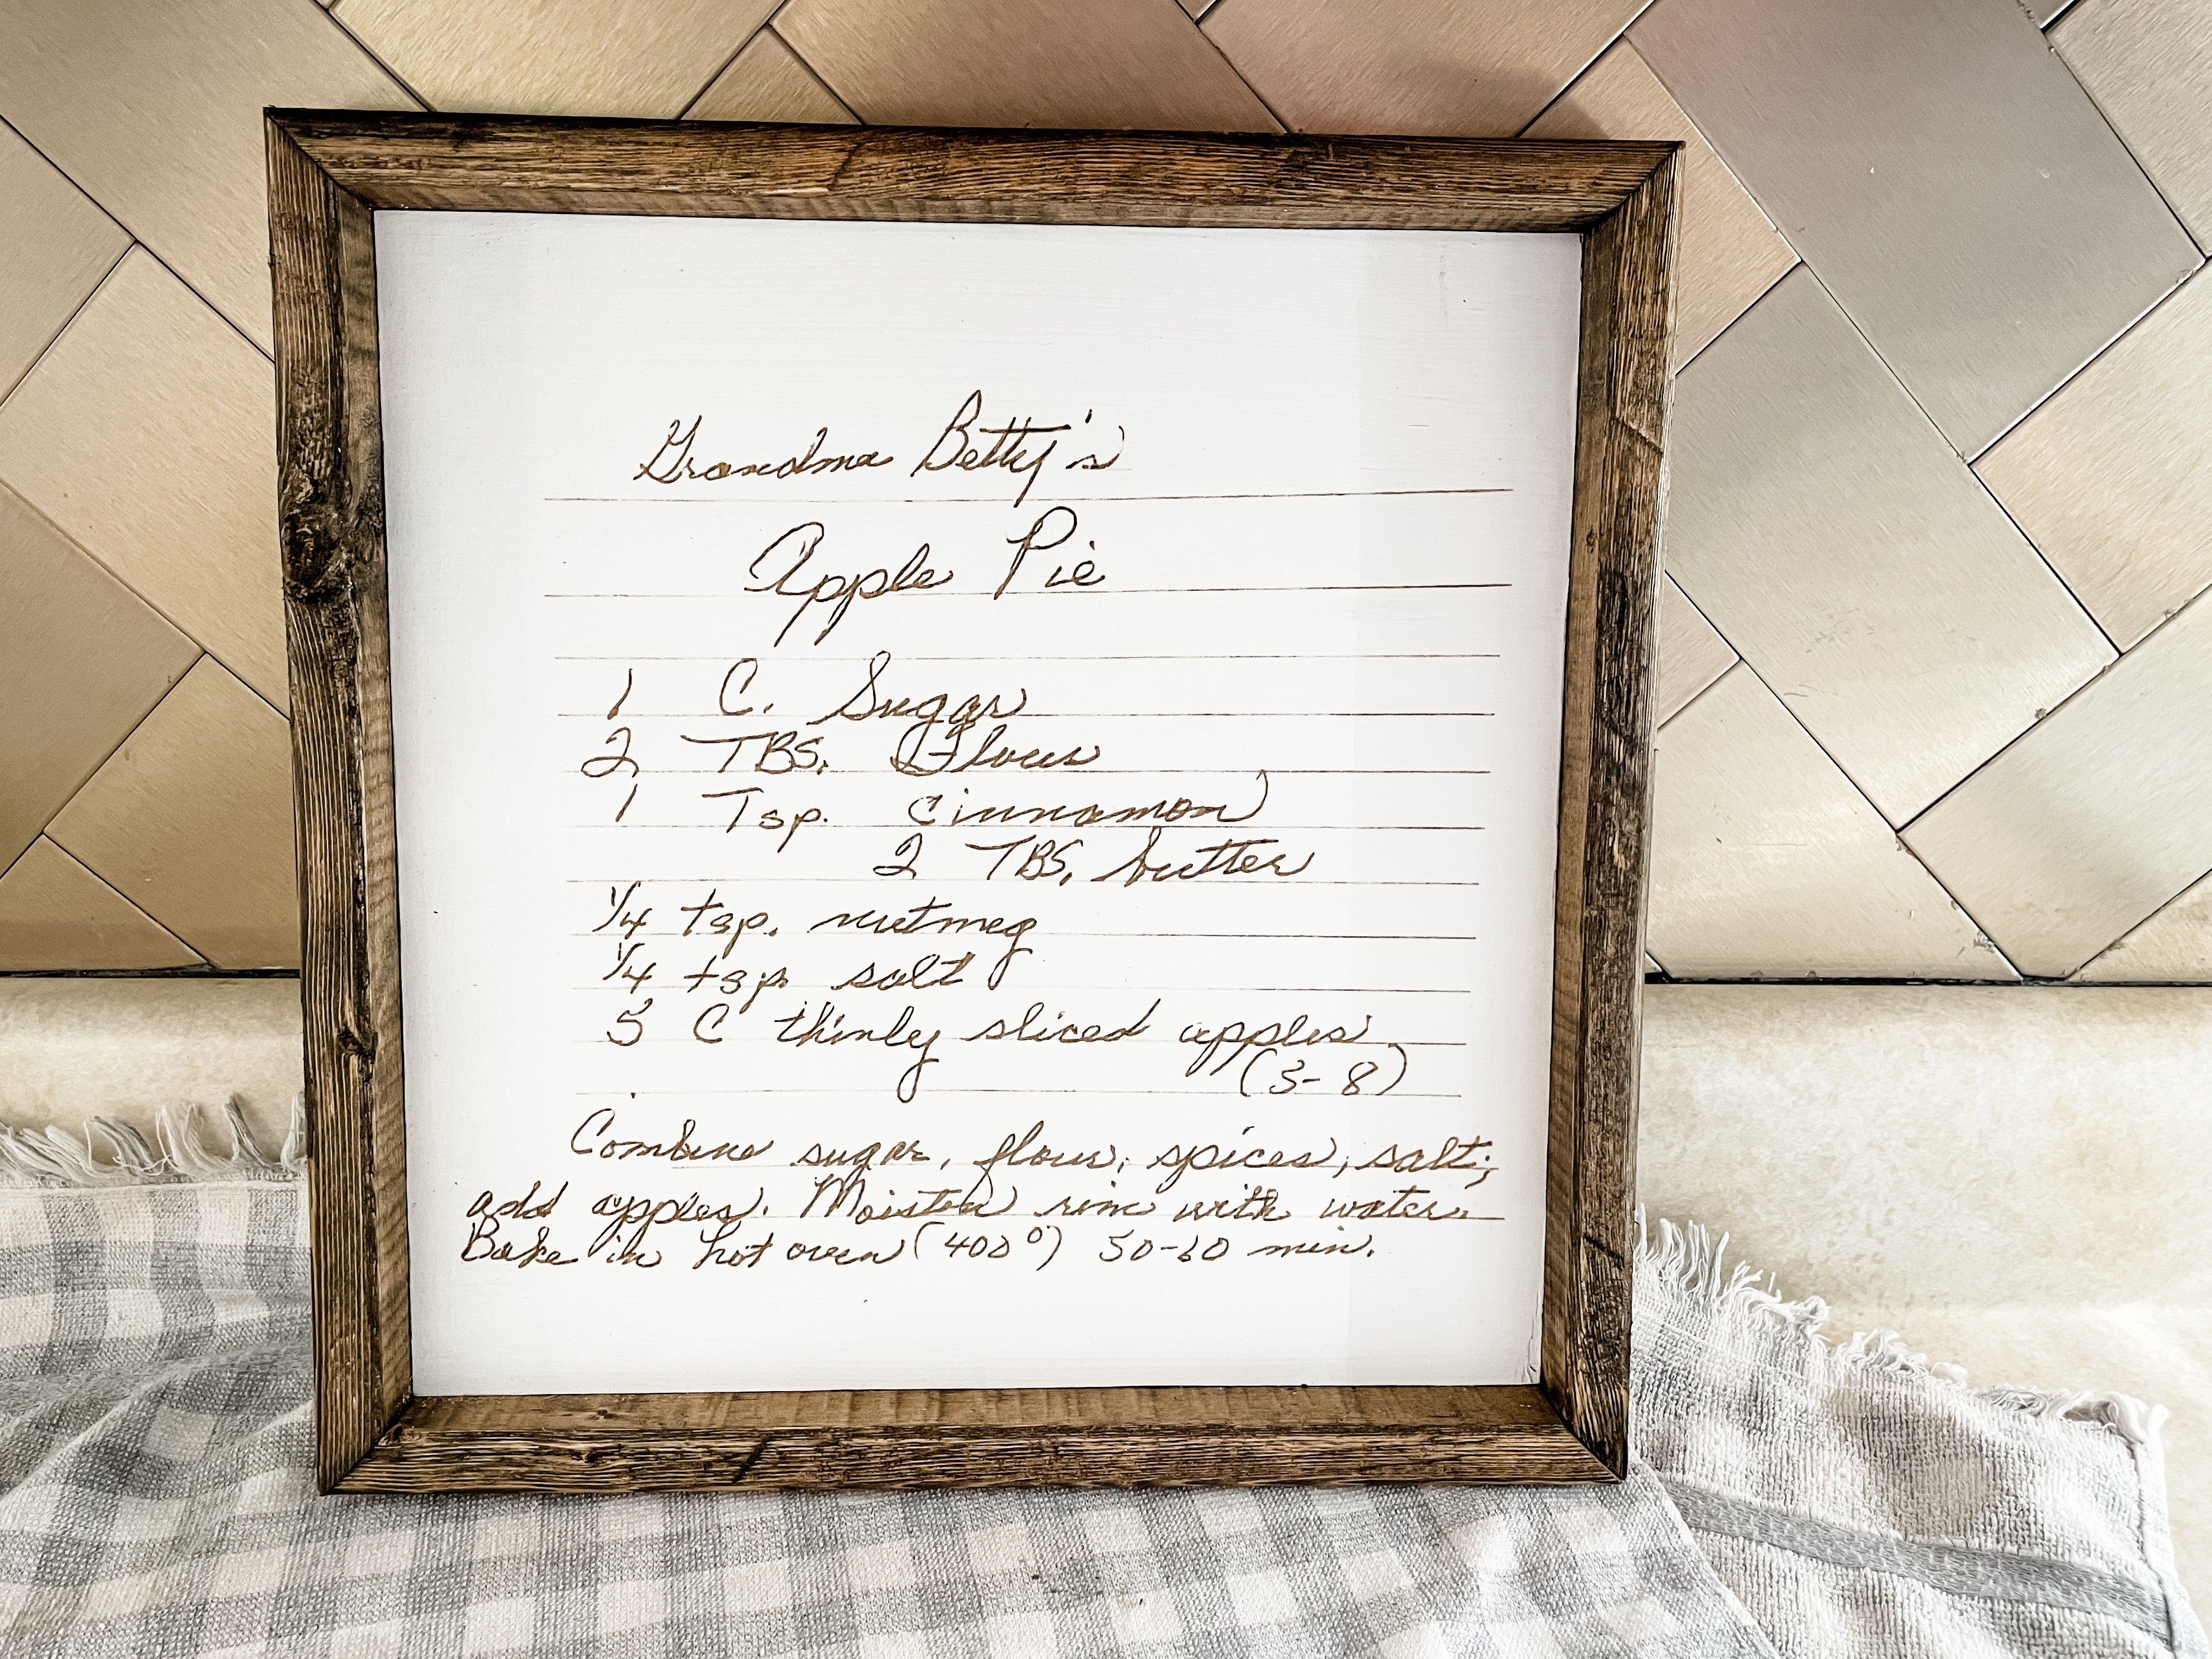 Grandma Betty's
Apple Pie
1 C. Sugar
2 TBS. Flour
1 Tsp. Cinnamon
2 TBS. butter
1/4 tsp. nutmeg
1/4 tsp. salt
5 C thinly sliced apples
(3-8)
Combine sugar, flour, spices, salt;
add apples. Moisten rim with water.
Bake in hot oven (400°) 50-60 min.